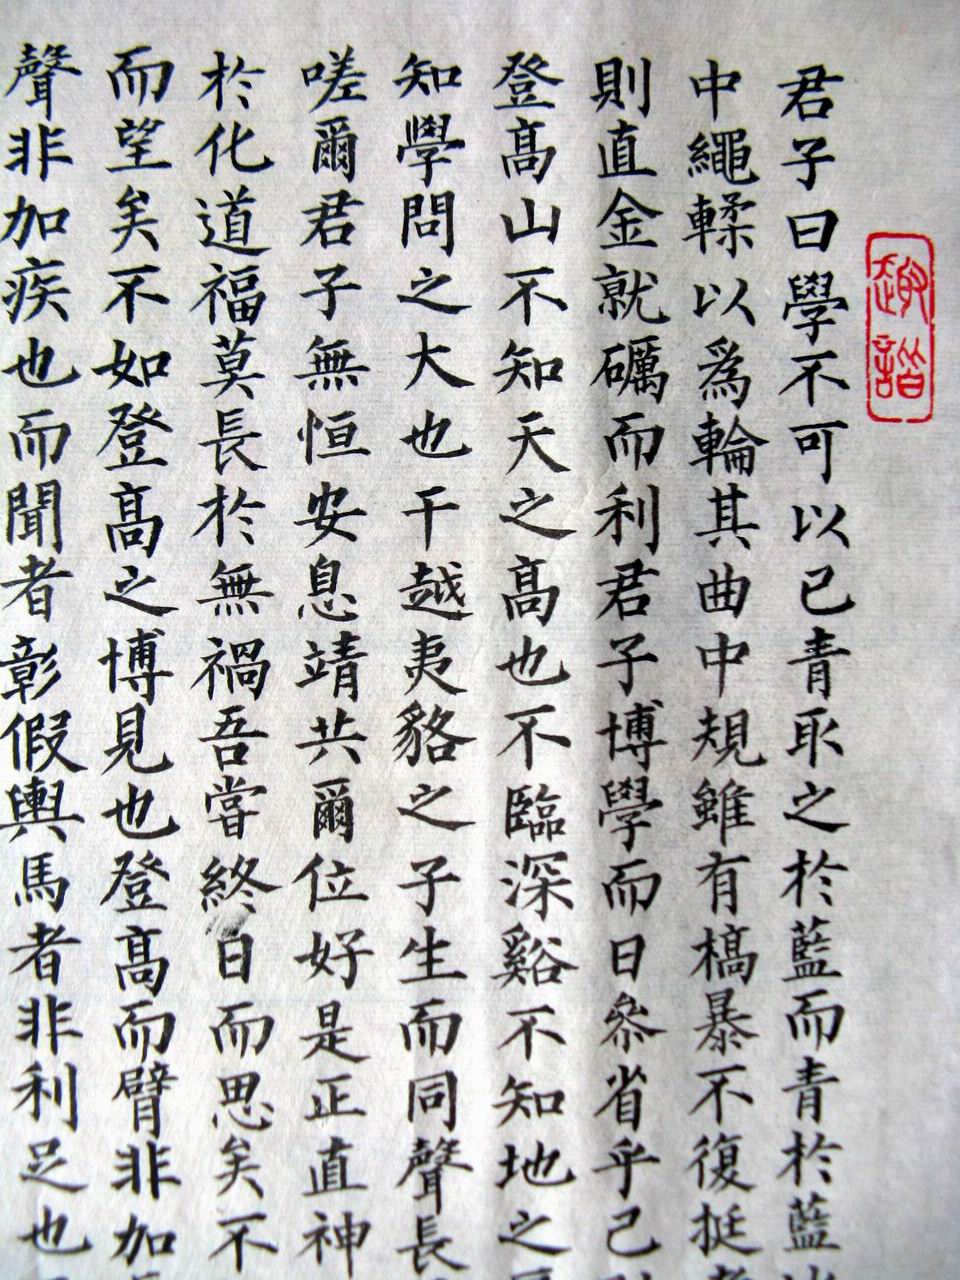 君子曰學不可以已青取之於藍而青於藍
中繩輮以爲輪其曲中規雖有槁暴不復挺
則直金就礪而利君子博學而日參省乎己
登高山不知天之高也不臨深谿不知地之
知學問之大也干越夷貉之子生而同聲長
嗟爾君子無恒安息靖共爾位好是正直神
於化道福莫長於無禍吾嘗終日而思矣不
而望矣不如登高之博見也登高而臂非加
聲非加疾也而聞者彰假輿馬者非利足也